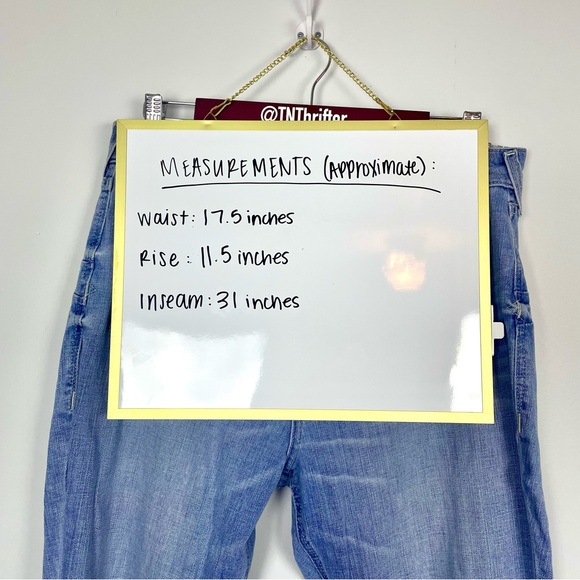 @TNThrifter
MEASUREMENTS (Approximate):
Waist: 17.5 inches
Rise: 11.5 inches
Inseam: 31 inches